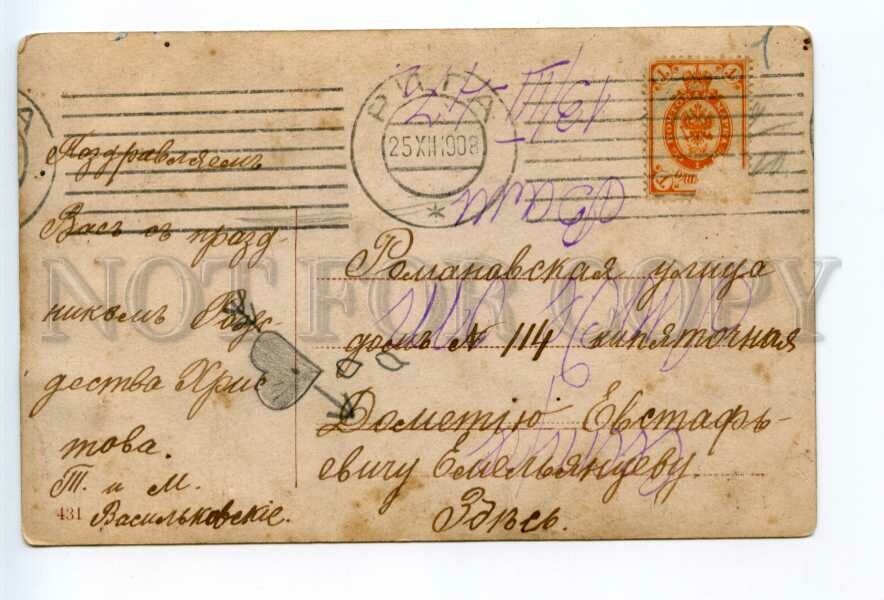 РИГА
25 XII 1908
Поздравляемъ
Васъ съ празд-
никомъ Рож-
дества Хрис
това.
Т. и М.
Васильковскіе.
431
Романовская улица
домъ № 114 кипяточная
Дометію Евстафь-
евичу Емельянцеву.
Здѣсь.
NOT FOR COPY